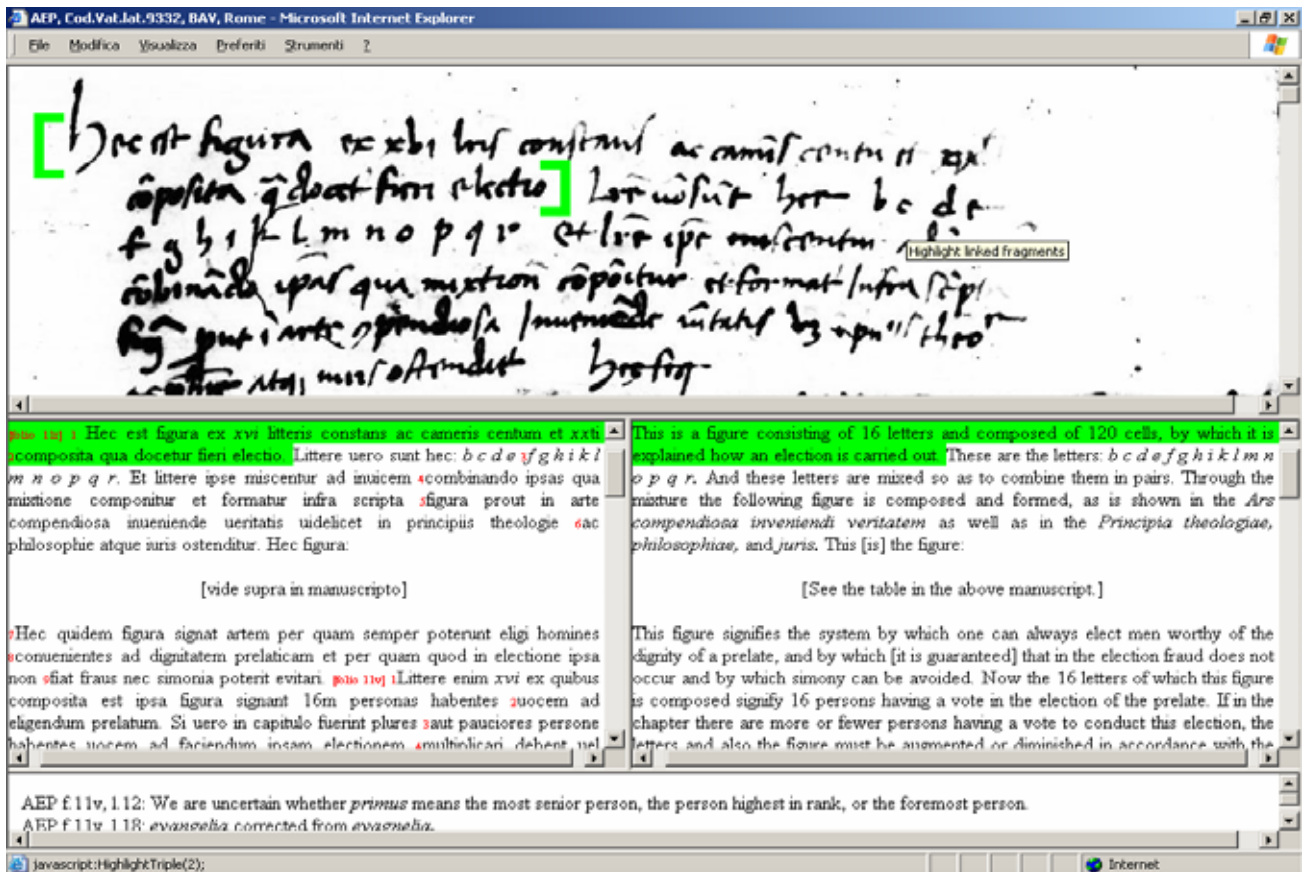 AEP, Cod.Vat.lat.9332, BAV, Rome - Microsoft Internet Explorer
File Modifica Visualizza Preferiti Strumenti ?
hec est figura ex constans ac
fieri electio hec b c d e
f g h i k l m n o p q r et
Highlight linked fragments
et format infra
[folio 11r] 1 Hec est figura ex xvi litteris constans ac cameris centum et xxti
2composita qua docetur fieri electio. Littere uero sunt hec: b c d e 3f g h i k l
m n o p q r. Et littere ipse miscentur ad inuicem 4combinando ipsas qua
mixtione componitur et formatur infra scripta 5figura prout in arte
compendiosa inueniende ueritatis uidelicet in principiis theologie 6ac
philosophie atque iuris ostenditur. Hec figura:
[vide supra in manuscripto]
7Hec quidem figura signat artem per quam semper poterunt eligi homines
8conuenientes ad dignitatem prelaticam et per quam quod in electione ipsa
non 9fiat fraus nec simonia poterit evitari. [folio 11v] 1Littere enim xvi ex quibus
composita est ipsa figura signant 16m personas habentes 2uocem ad
eligendum prelatum. Si uero in capitulo fuerint plures 3aut pauciores persone
habentes uocem ad faciendum ipsam electionem 4multiplicari debent uel
This is a figure consisting of 16 letters and composed of 120 cells, by which it is
explained how an election is carried out. These are the letters: b c d e f g h i k l m n
o p q r. And these letters are mixed so as to combine them in pairs. Through the
mixture the following figure is composed and formed, as is shown in the Ars
compendiosa inveniendi veritatem as well as in the Principia theologiae,
philosophiae, and juris. This [is] the figure:
[See the table in the above manuscript.]
This figure signifies the system by which one can always elect men worthy of the
dignity of a prelate, and by which [it is guaranteed] that in the election fraud does not
occur and by which simony can be avoided. Now the 16 letters of which this figure
is composed signify 16 persons having a vote in the election of the prelate. If in the
chapter there are more or fewer persons having a vote to conduct this election, the
letters and also the figure must be augmented or diminished in accordance with the
AEP f.11v, l.12: We are uncertain whether primus means the most senior person, the person highest in rank, or the foremost person.
AEP f.11v, l.18: evangelia corrected from evagnelia.
javascript:HighlightTriple(2);
Internet